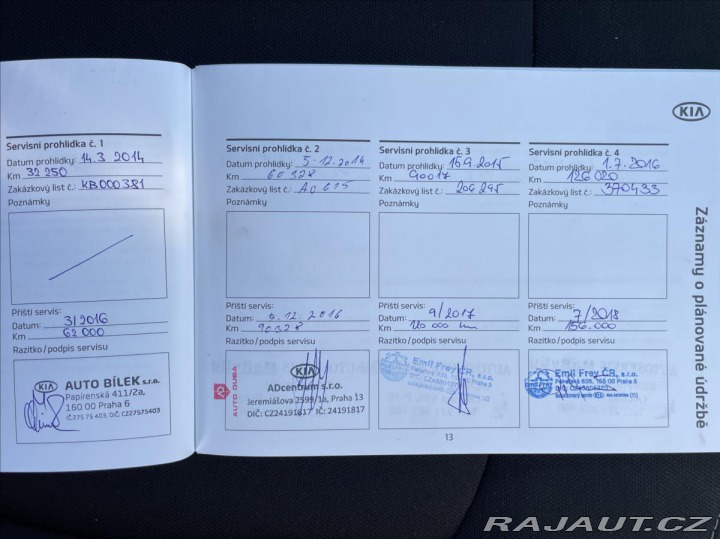 KIA
Servisní prohlídka č. 1
Datum prohlídky: 14.3.2014
Km 32 250
Zakázkový list č.: KB000381
Poznámky
Příští servis:
Datum: 3/2016
Km 62 000
Razítko/podpis servisu
KIA AUTO BÍLEK s.r.o.
Papírenská 411/2a,
160 00 Praha 6
IČ:275 75 403, DIČ: CZ27575403
Servisní prohlídka č. 2
Datum prohlídky: 5.12.2014
Km 60 328
Zakázkový list č.: A0 615
Poznámky
Příští servis:
Datum: 5.12.2016
Km 90328
Razítko/podpis servisu
AUTO DUBA
KIA
ADcentrum s.r.o.
Jeremiášova 2599/1a, Praha 13
DIČ: CZ24191817 IČ: 24191817
Servisní prohlídka č. 3
Datum prohlídky: 15.9.2015
Km 90017
Zakázkový list č.: 206295
Poznámky
Příští servis:
Datum: 9/2017
Km 120 000 km
Razítko/podpis servisu
Emil Frey ČR, s.r.o.
Pekařská 638, 155 00 Praha 5
Servisní prohlídka č. 4
Datum prohlídky: 1.7.2016
Km 126 020
Zakázkový list č.: 370433
Poznámky
Příští servis:
Datum: 7/2018
Km 156.000
Razítko/podpis servisu
Emil Frey ČR, s.r.o.
Pekařská 638, 155 00 Praha 5
Záznamy o plánované údržbě
13
RAJAUT.CZ